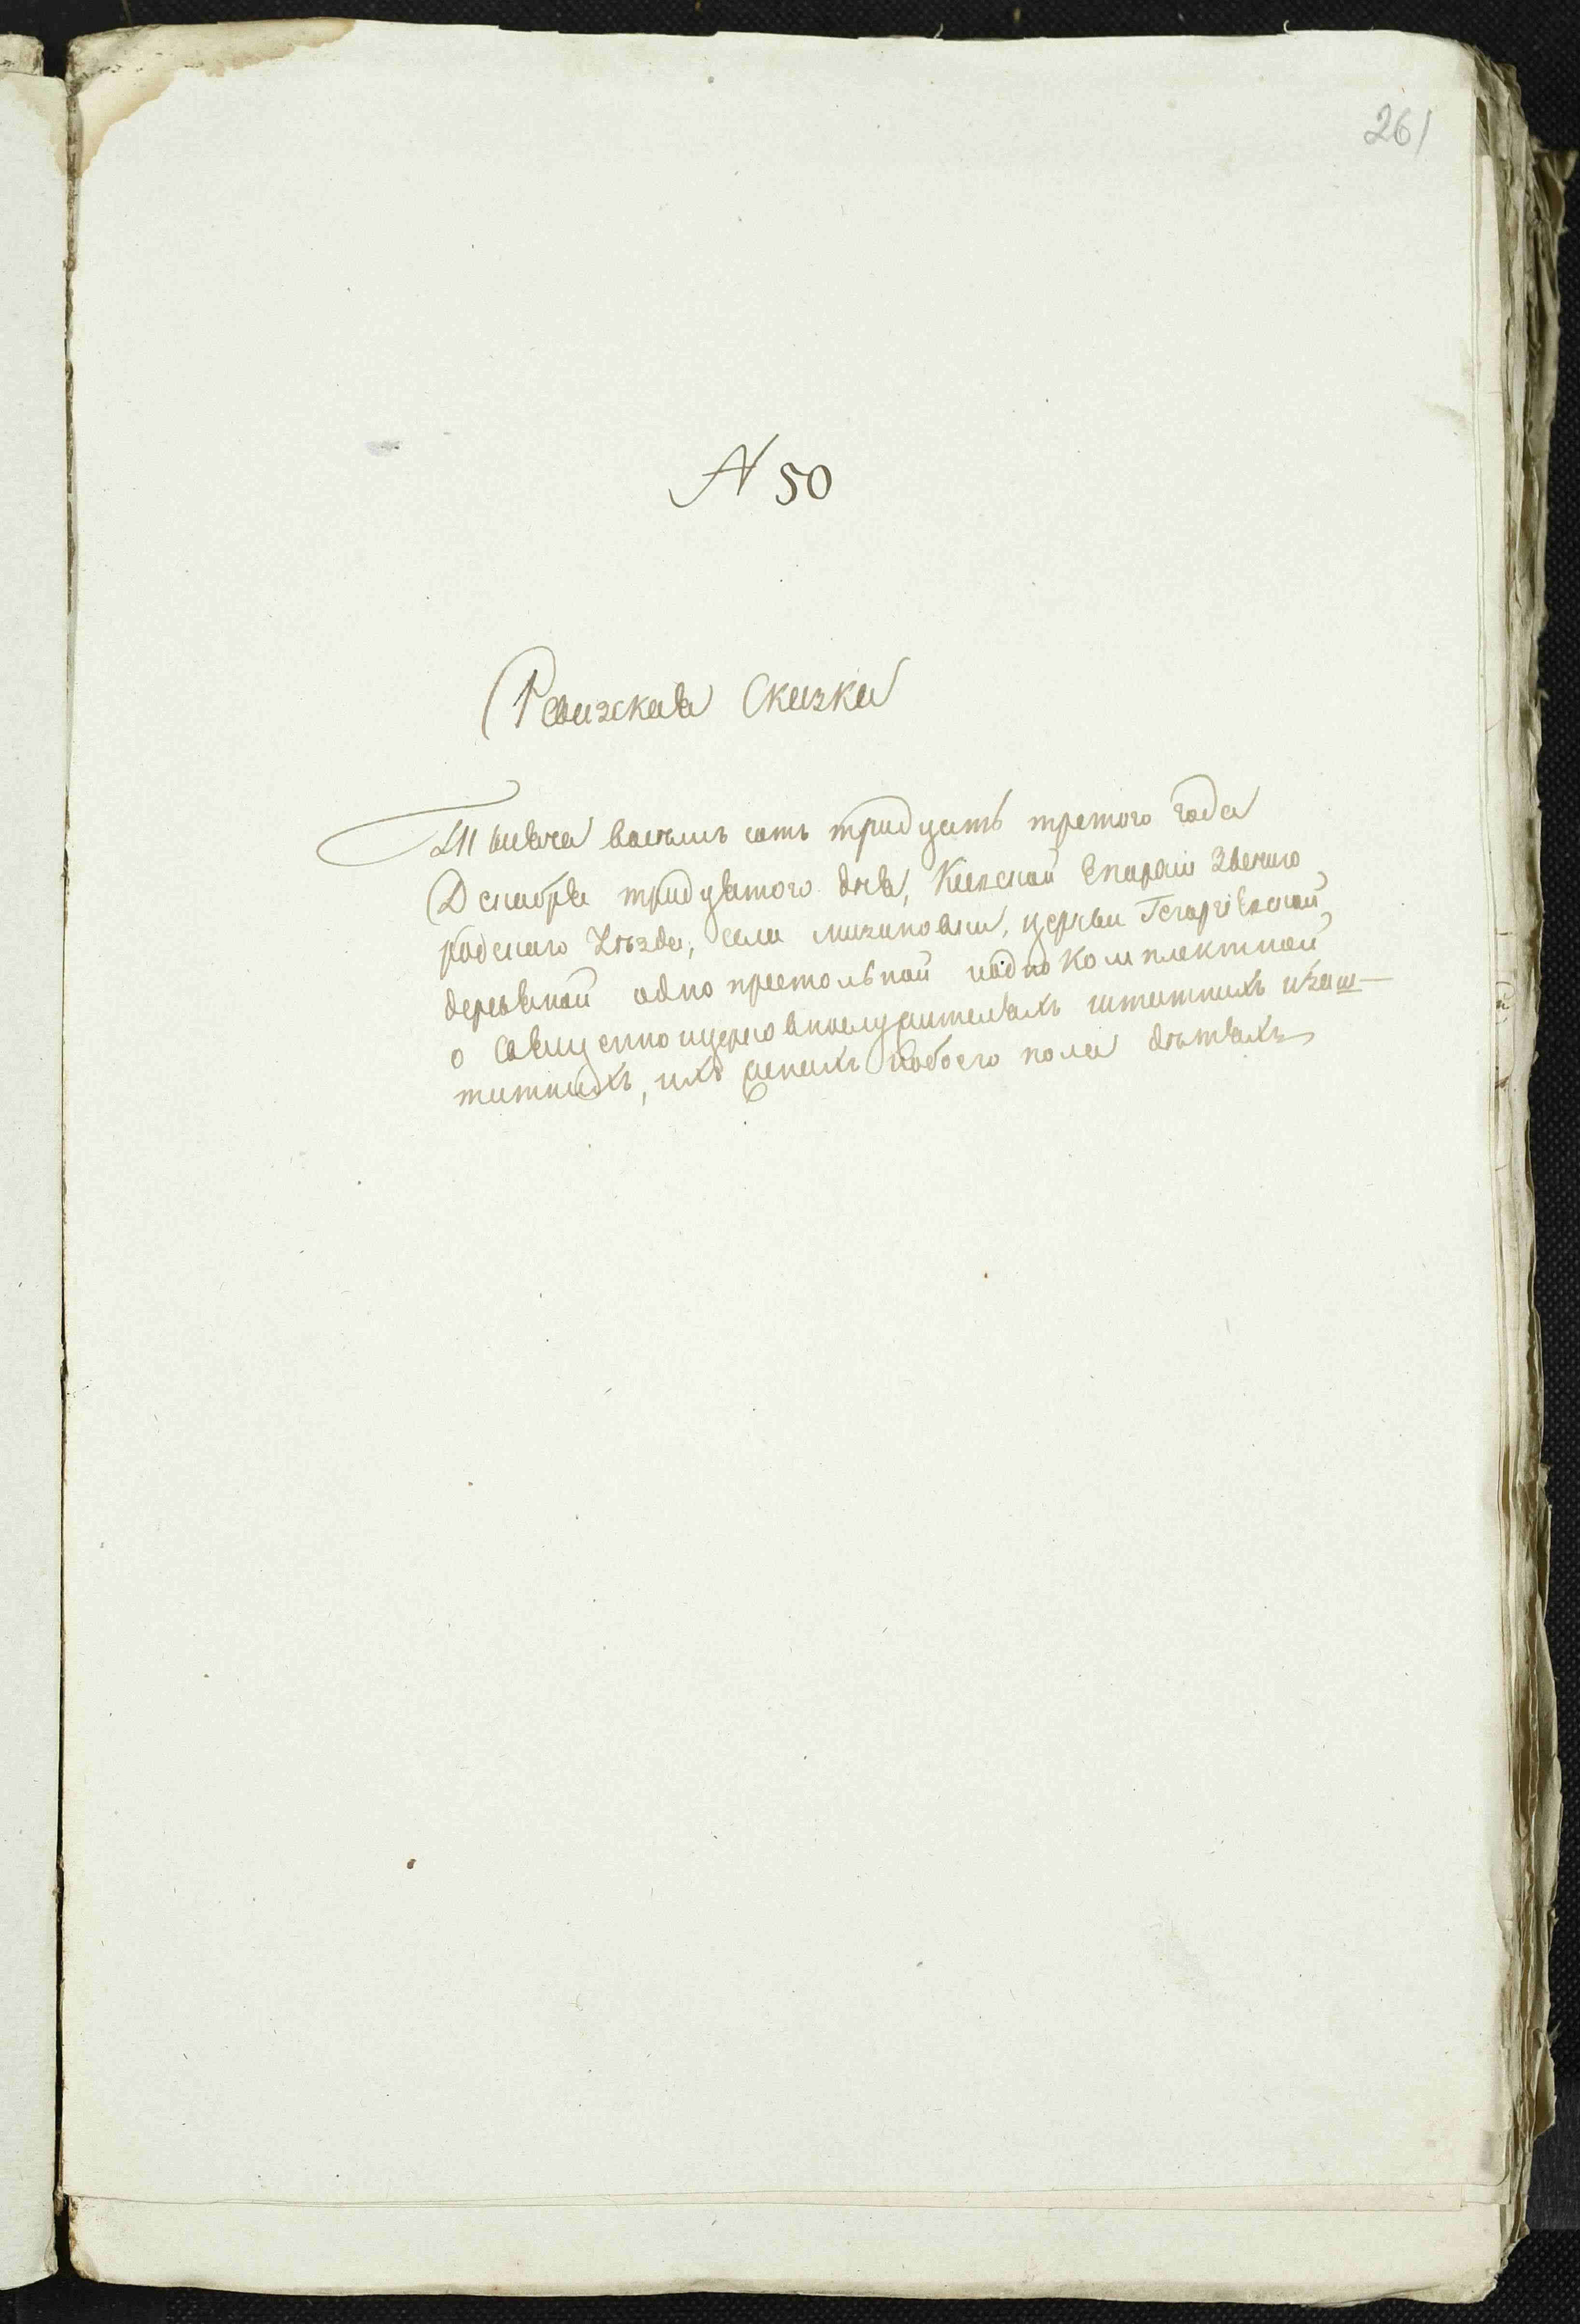 261
N 50
Ревизская Сказка
Тысяча восемь сотъ тридцать третого года
Декабря тридцятого дня, Киевской Епархіи Звениго
родского Уѣзда, села Мизиновки, церкви Георгіевской
деревяной одно престольной иодно комплектной
о священно ицерковнослужителяхъ штатныхъ изаш-
татныхъ, ихъ женахъ иобоего пола дѣтяхъ